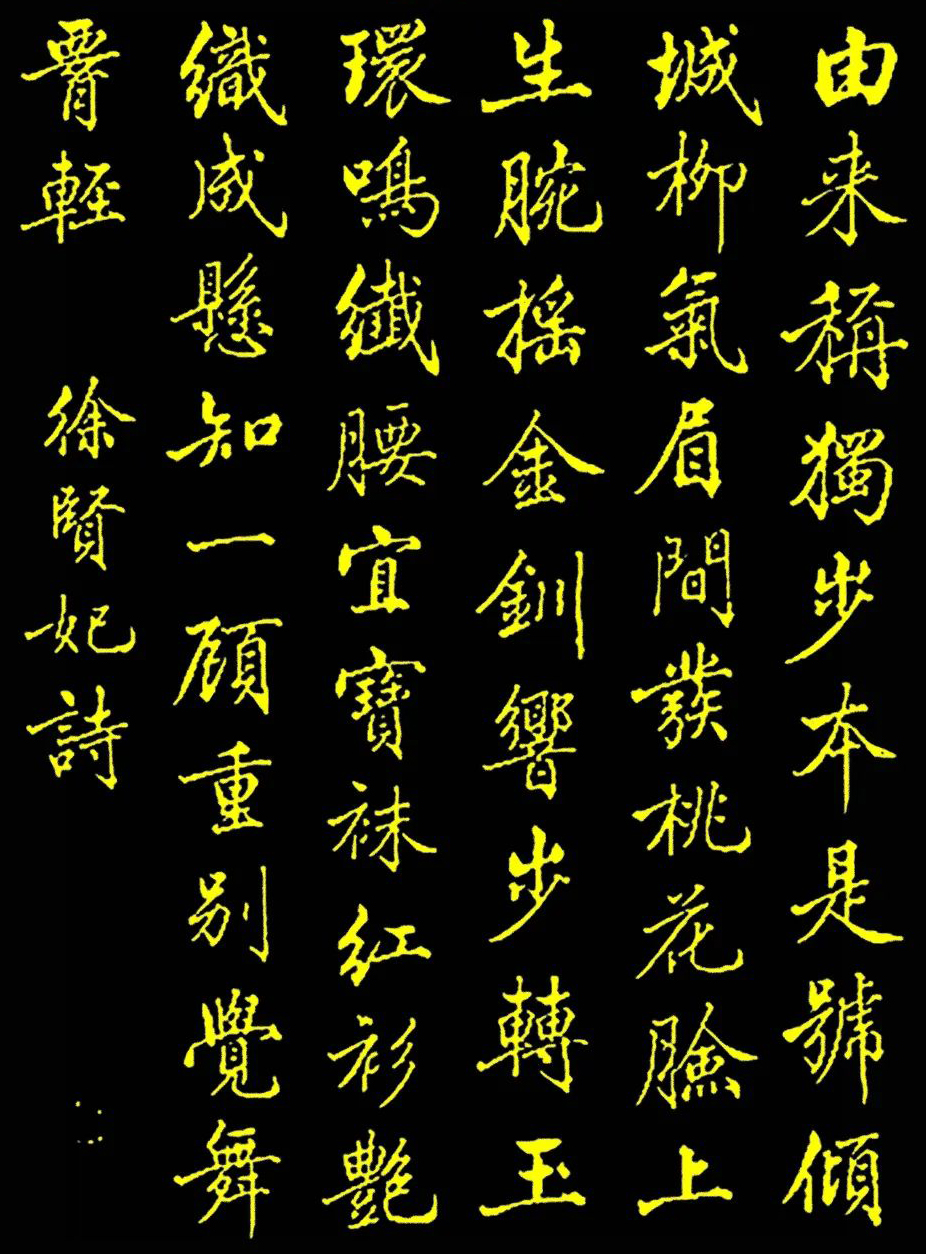 由来稱獨步本是號傾
城柳氣眉間發桃花臉上
生腕摇金釧響步轉玉
環鳴纖腰宜寶袜紅衫艶
織成懸知一顧重別覺舞
輕
徐賢妃詩